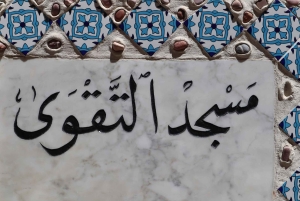 مَسْجِدْ ٱلتَّقْوَىٰ